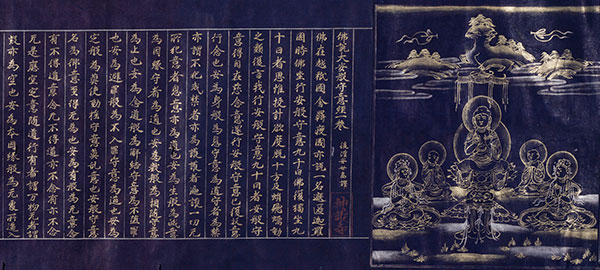 佛說大安般守意經一卷 後漢安世高譯
佛在越祇國舍羇瘦國亦說一名遮匿迦羅
國時佛坐行安般守意九十日佛復獨坐九
十日者思惟挍計欲度脫十方及蜎飛蠕動
之類復言我行安般守意九十日者安般守
意得自在慈念意還行安般守意已復收意
行念也安為身般為息守意為道守者為禁
亦謂不犯戒禁者亦為護護者遍護一切无
所犯意者息意亦為道也安為生般為滅意
為因緣守者為道也安為數般為相隨守意
為止也安為念道般為解結守意為不墮罪
也安為避罪般為不入罪守意為道也安為
定般為莫使動搖守意莫亂意也安般守意
名為御意至得无為也安為有般為无意念
有不得道意念无不得道亦不念有亦不念
无是應空定意隨道行有者謂万物无者謂
疑亦為空也安為本因緣般為无處所道人
神護寺